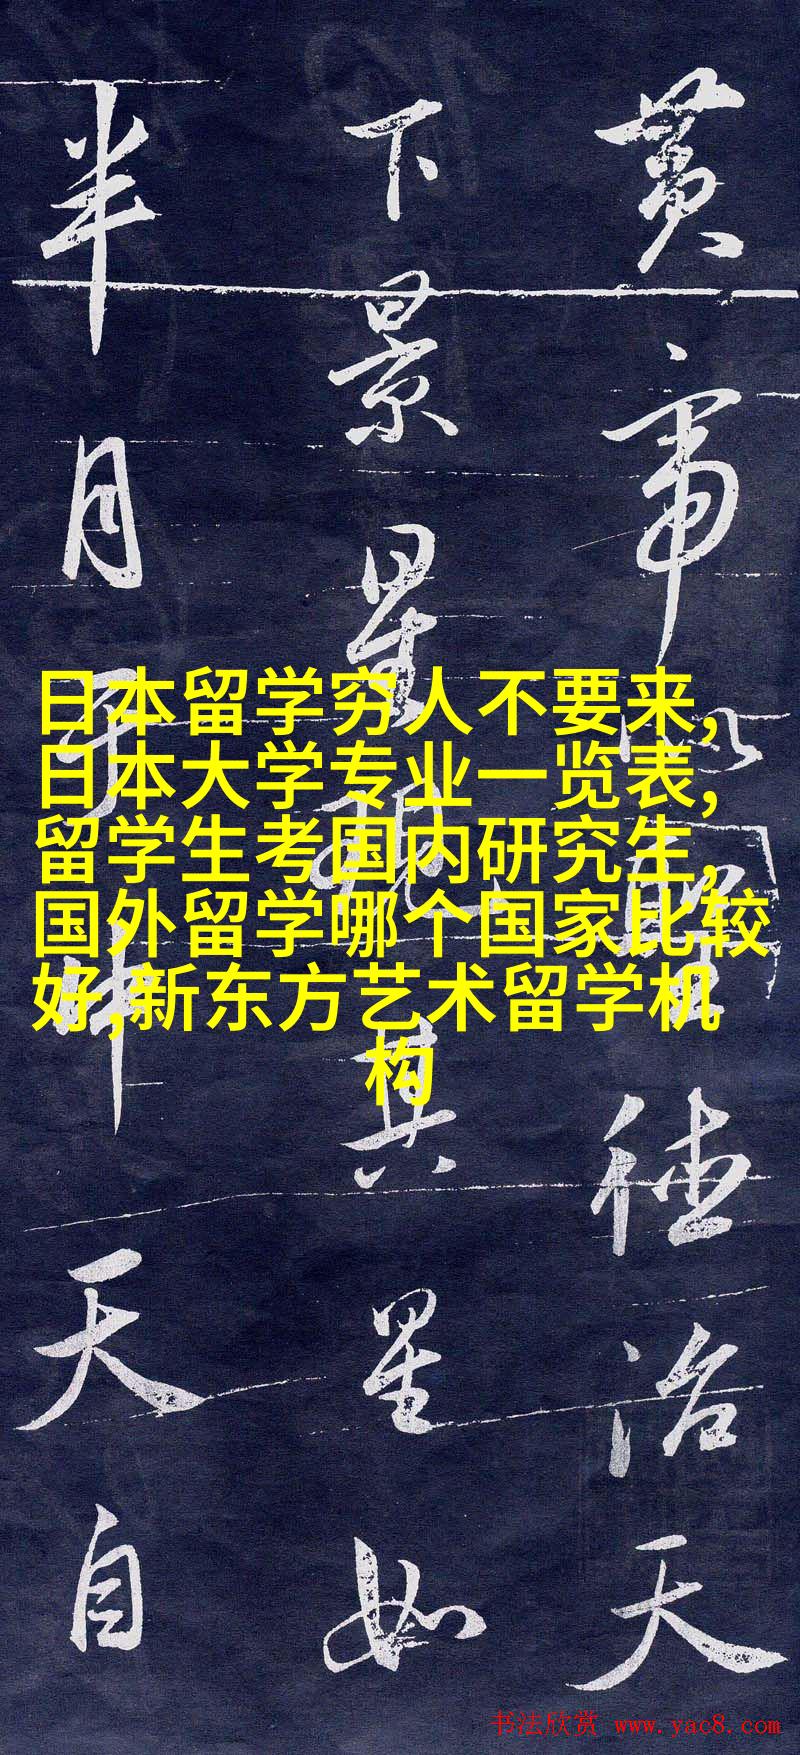 黄帝以聖德治天
下景星現其星如
半月于天自
日本留学穷人不要来,
日本大学专业一览表,
留学生考国内研究生,
国外留学哪个国家比较
好,新东方艺术留学机
构
书法欣赏 www.yac8.com